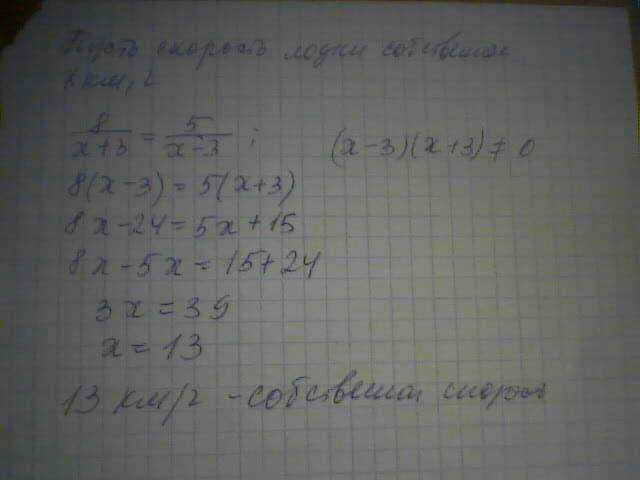 Пусть скорость лодки собственная
x км/ч
8/(x+3) = 5/(x-3) ; (x-3)(x+3) ≠ 0
8(x-3) = 5(x+3)
8x-24=5x+15
8x-5x=15+24
3x=39
x=13
13 км/ч - собственная скорость